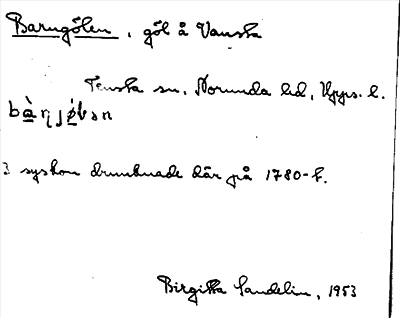 Barngölen, göl å Vanska
Tensta sn, Norunda hd, Upps. l.
3 syskon drunknade där på 1780-t.
Birgitta Sandelin, 1953